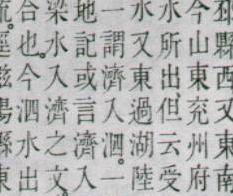 邳縣西又東南
今山東兗州府
水所出但云受
水又東過湖陸
一謂濟入泗一
地記或言濟入
梁水入濟之文
合也今泗水出